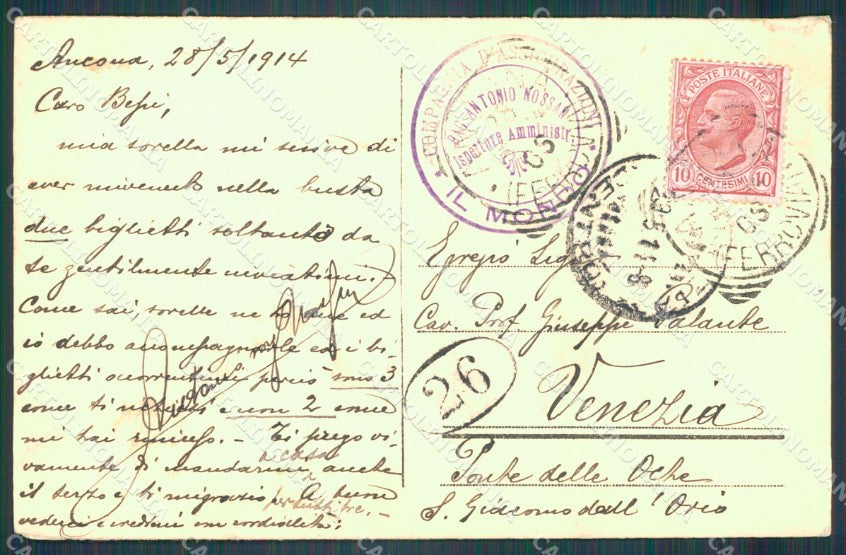 Ancona, 28/5/1914
Caro Bepi,
mia sorella mi scrive di
aver rinvenuto nella busta
due biglietti soltanto da
te gentilmente inviatimi.
Come sai, sorelle ne ho due ed
io debbo accompagnarle ed i bi-
glietti occorrenti perciò sono 3
come ti e non 2 come
mi hai rimesso. - Ti prego vi-
vamente di mandarmi a casa anche
il terzo e ti ringrazio per tutti tre. - A buon
vederci e credimi con cordialità:
COMPAGNIA D'ASSICURAZIONI
ANTONIO NOSSAN
Ispettore Amministr.
IL MONDO
POSTE ITALIANE
10 CENTESIMI 10
ANCONA
(FERROVIA)
VENEZIA
CENTRO
Egregio Sig.
Cav. Prof. Giuseppe Palante
26
Venezia
Ponte delle Oche
S. Giacomo dall'Orio
CARTOLINOMANIA